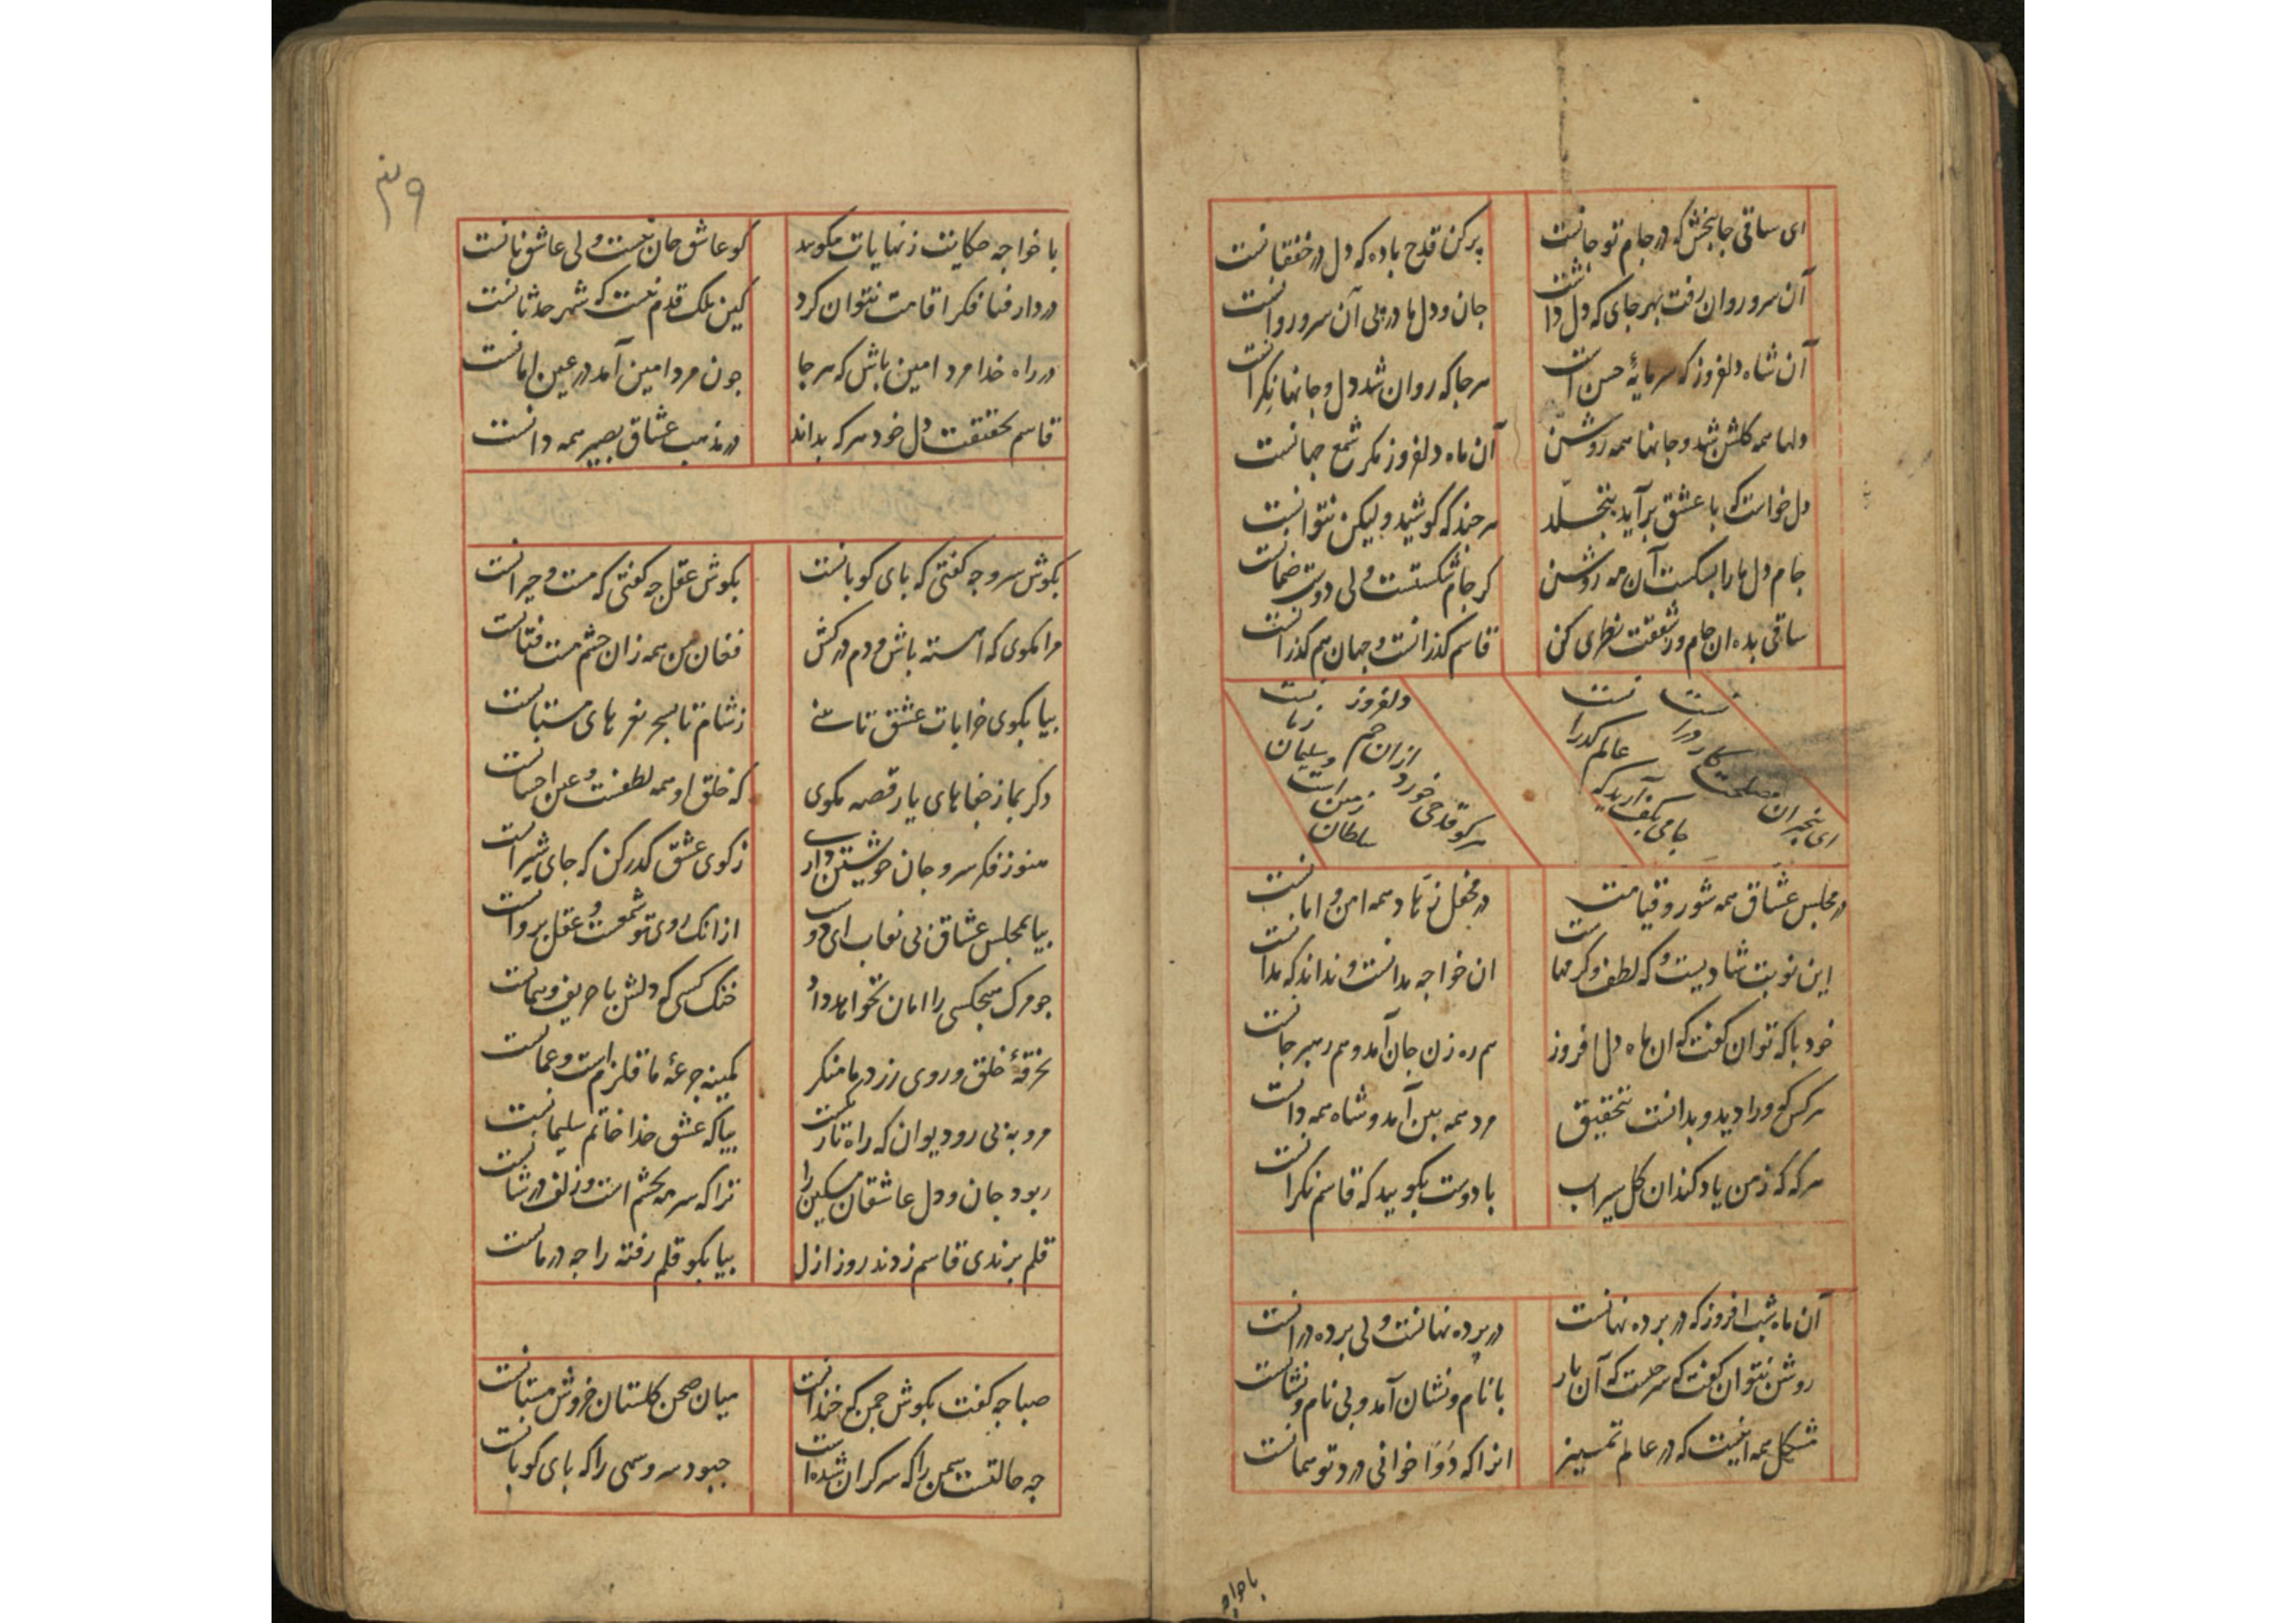 ای ساقی جانبخش که در جام تو جانست
پر کن قدح باده که دل در خفقانست
آن سرو روان رفت بهر جای که دل داشت
جان و دل ما در پی آن سرو روانست
آن شاه دلفروز که سرمایهٔ حسن است
هر جا که روان شد دل و جانها نگرانست
دلها همه گلشن شد و جانها همه روشن
آن ماه دلفروز مگر شمع جهانست
دل خواست که با عشق برآید بتجلد
هر چند که کوشید ولیکن نتوانست
جام دل ما را بشکست آن مه روشن
گر جام شکستست ولی دوست ضمانست
ساقی بده ان جام و ز شفقت نظری کن
قاسم گذرانست و جهان هم گذرانست
ای بیخبران مصلحت کار در آنست
جامی بکف آرید که عالم گذرانست
هر کو قدحی خورد از ان خم دلفروز
سلطان زمین است و سلیمان زمانست
در مجلس عشاق همه شور و قیامت
در محفل زهاد همه امن و امانست
این نوبت شادیست و که لطف و کرم ماست
ان خواجه بدانست و نداند که بدانست
خود با که توان گفت که ان ماه دل افروز
هم ره زن جان آمد و هم رهبر جانست
هر کس که ورا دید و بدانست بتحقیق
مرد همه بین آمد و شاه همه دانست
هر که که ز من یاد کند ان گل سیراب
با دوست بگویید که قاسم نگرانست
آن ماه شب افروز که در پرده نهانست
در پرده نهانست ولی پرده درانست
روشن نتوان گفت که سر چیست که آن یار
با نام و نشان آمد و بی نام و نشانست
مشکل همه اینست که در عالم تمییز
انرا که دوا خوانی درد تو همانست
با خواجه
۳۹
با خواجه حکایت ز نهایات مگویید
کو عاشق جان نیست ولی عاشق نانست
در دار فنا فکر اقامت نتوان کرد
کین ملک قدم نیست که شهر حدثانست
در راه خدا مرد امین باش که هر جا
چون مرد امین آمد در عین امانست
قاسم بحقیقت دل خود هر که بداند
در مذهب عشاق بصیر همه دانست
بگوش سرو چه گفتی که پای کوبانست
بگوش عقل چه گفتی که مست و حیرانست
مرا مگوی که آهسته باش و دم در کش
فغان من همه زان چشم مست فتانست
بیا بکوی خرابات عشق تا بینی
ز شام تا بسحر نعرهای مستانست
دگر بما ز جفاهای یار قصه مگوی
که خلق او همه لطفست و عین احسانست
هنوز فکر سر و جان خویشتن داری
ز کوی عشق گذر کن که جای شیرانست
بیا بمجلس عشاق بی نقاب ای دوست
از انک روی تو شمعست و عقل پروانست
چو مرگ هیچکسی را امان نخواهد داد
خنک کسی که دلش با حریف و همانست
بخرقهٔ خلق و روی زرد ما منگر
کمینه جرعهٔ ما قلزم است و عمانست
مرو به پی رو دیوان که راه تاریکست
بیا که عشق خدا خاتم سلیمانست
ربود جان و دل عاشقان مسکین را
ترا که سرمه بچشم است و زلف در شانست
قلم برندی قاسم زدند روز ازل
بیا بگو قلم رفته را چه درمانست
صبا چه گفت بگوش چمن که خندانست
میان صحن گلستان خروش مستانست
چه حالتست سمن را که سر گران شده است
چه بود سرو سهی را که پای کوبانست